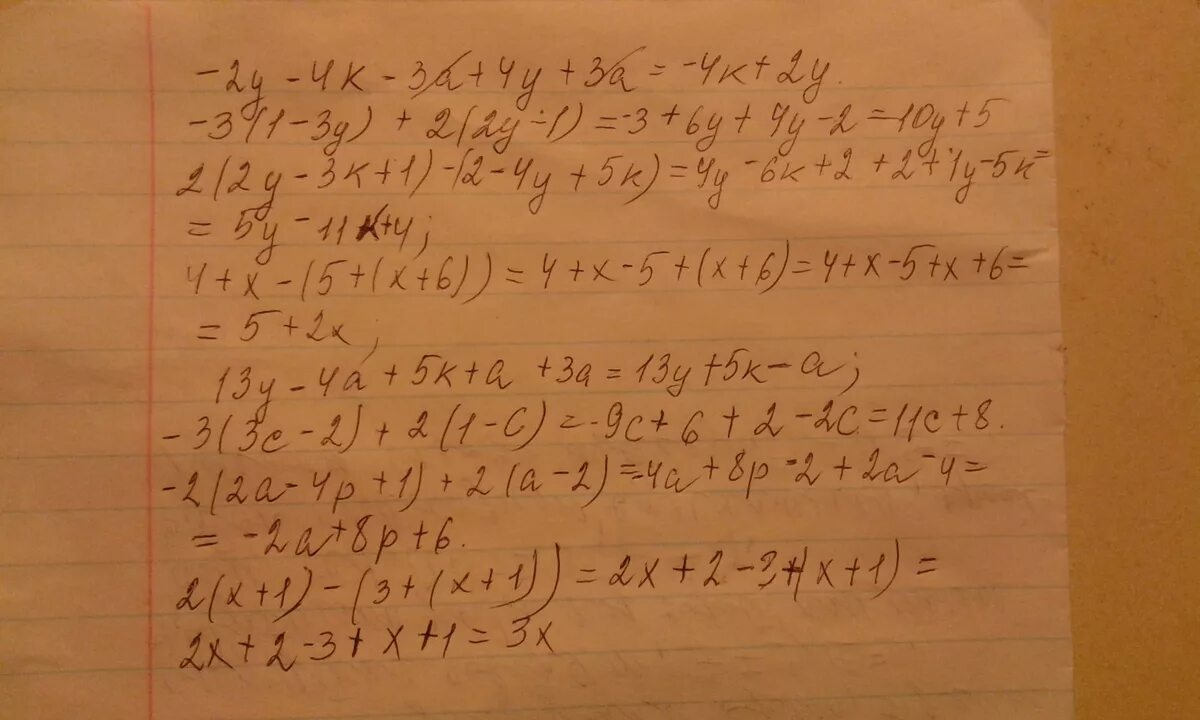 -2y - 4к - 3a + 4y + 3a = -4к + 2y.
-3(1 - 3y) + 2(2y - 1) = -3 + 6y + 4y - 2 = 10y + 5
2(2y - 3к + 1) - (2 - 4y + 5к) = 4y - 6к + 2 + 2 + 1y - 5к =
= 5y - 11к + 4;
4 + x - (5 + (x + 6)) = 4 + x - 5 + (x + 6) = 4 + x - 5 + x + 6 =
= 5 + 2x;
13y - 4a + 5к + a + 3a = 13y + 5к - a;
-3(3c - 2) + 2(1 - c) = -9c + 6 + 2 - 2c = 11c + 8.
-2(2a - 4p + 1) + 2(a - 2) = -4a + 8p - 2 + 2a - 4 =
= -2a + 8p + 6.
2(x + 1) - (3 + (x + 1)) = 2x + 2 - 3 + (x + 1) =
2x + 2 - 3 + x + 1 = 3x